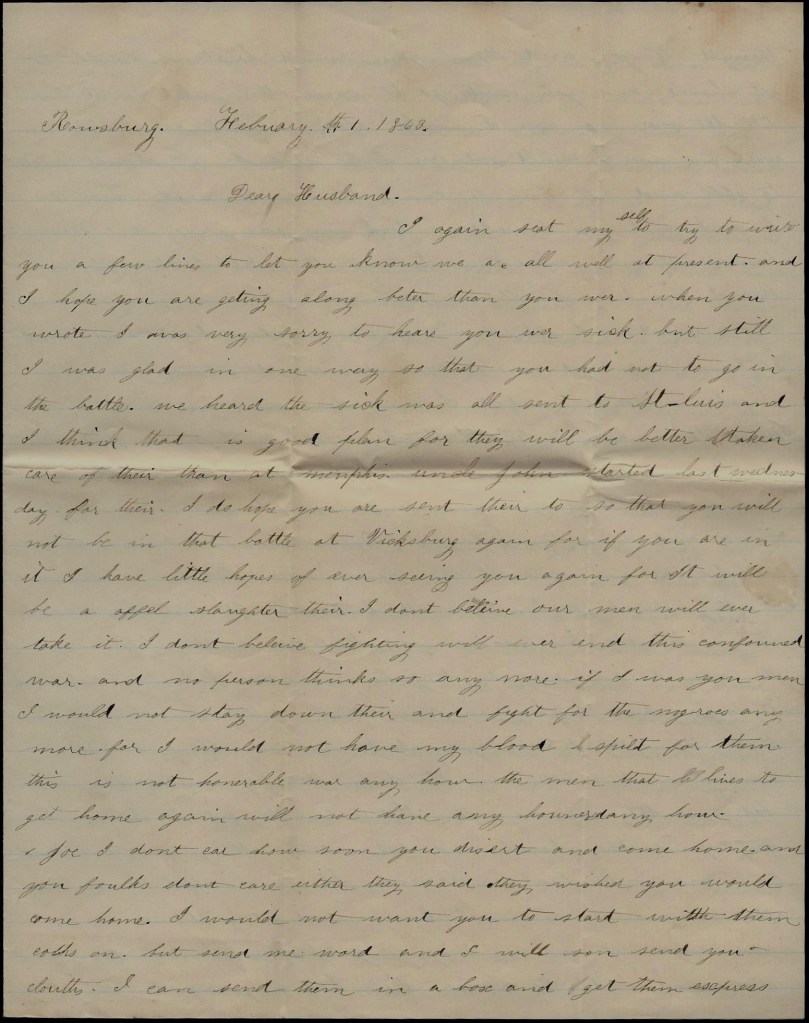 Rowsburg. Febuary. 1. 1863.
Dear Husband.
I again seat my self to try to write
you a few lines to let you know we a. all well at present. and
I hope you are geting along beter than you wer. when you
wrote I was very sorry to heare you wer sick. but still
I was glad in one way so that you had not to go in
the battle. we heard the sick was all sent to St-luis and
I think that is good plan for they will be better taken
care of their than at memphis. uncle John started last wednes
day. for their. I do hope you are sent their to so that you will
not be in that battle at Vicksburg again for if you are in
it I have little hopes of ever seeing you again for It will
be a offel slaughter their. I dont beleive our men will ever
take it. I dont beleive fighting will ever end this confouned
war. and no person thinks so any more. if I was you men
I would not stay down their and fight for the negroes any
more. for I would not have my blood spilt for them
this is not honerable war any how. the men that lives to
get home again will not have any houner any how.
Joe I dont car how soon you disert and come home. and
you foulks dont care either they said they wished you would
come home. I would not want you to start with them
coths on. but send me word and I will son send you
clouths. I can send them in a box and get them express